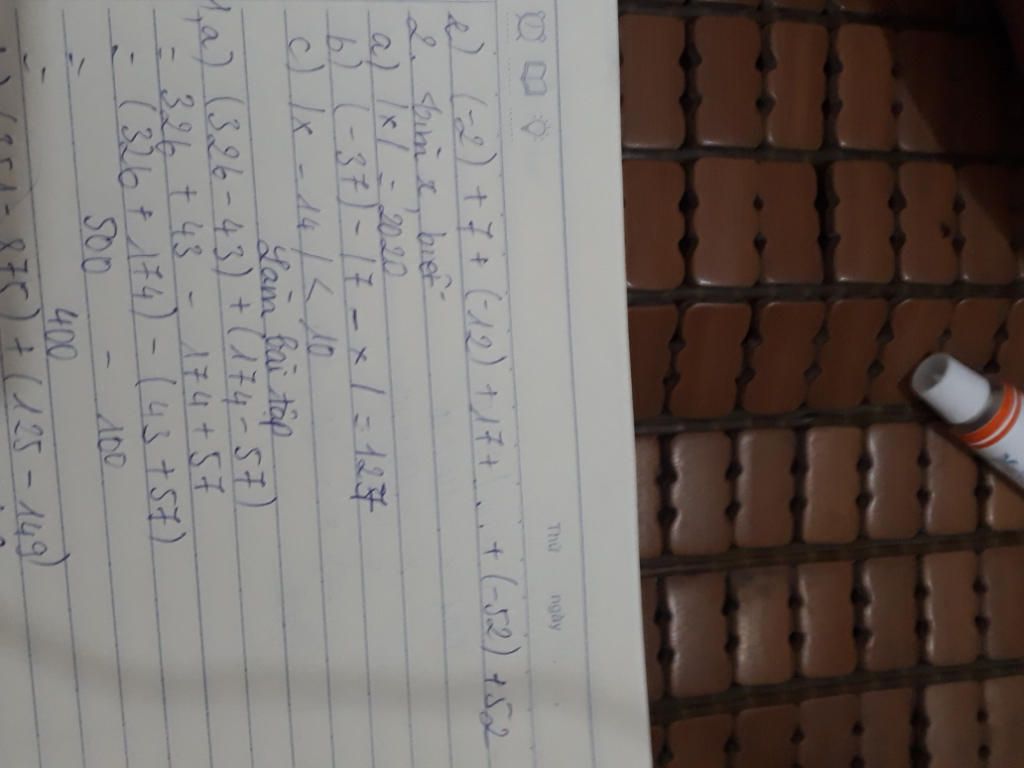 Thứ ngày
e) (-2) + 7 + (-12) + 17 + ... + (-52) + 52
2. Tìm x, biết
a) |x| = 2020
b) (-37) - 17 - x| = 127
c) |x - 14| < 10
Làm bài tập
1, a) (326 - 43) + (174 - 57)
= 326 + 43 - 174 + 57
= (326 + 174) - (43 + 57)
= 500 - 100
= 400
(351 - 875) + (125 - 149)